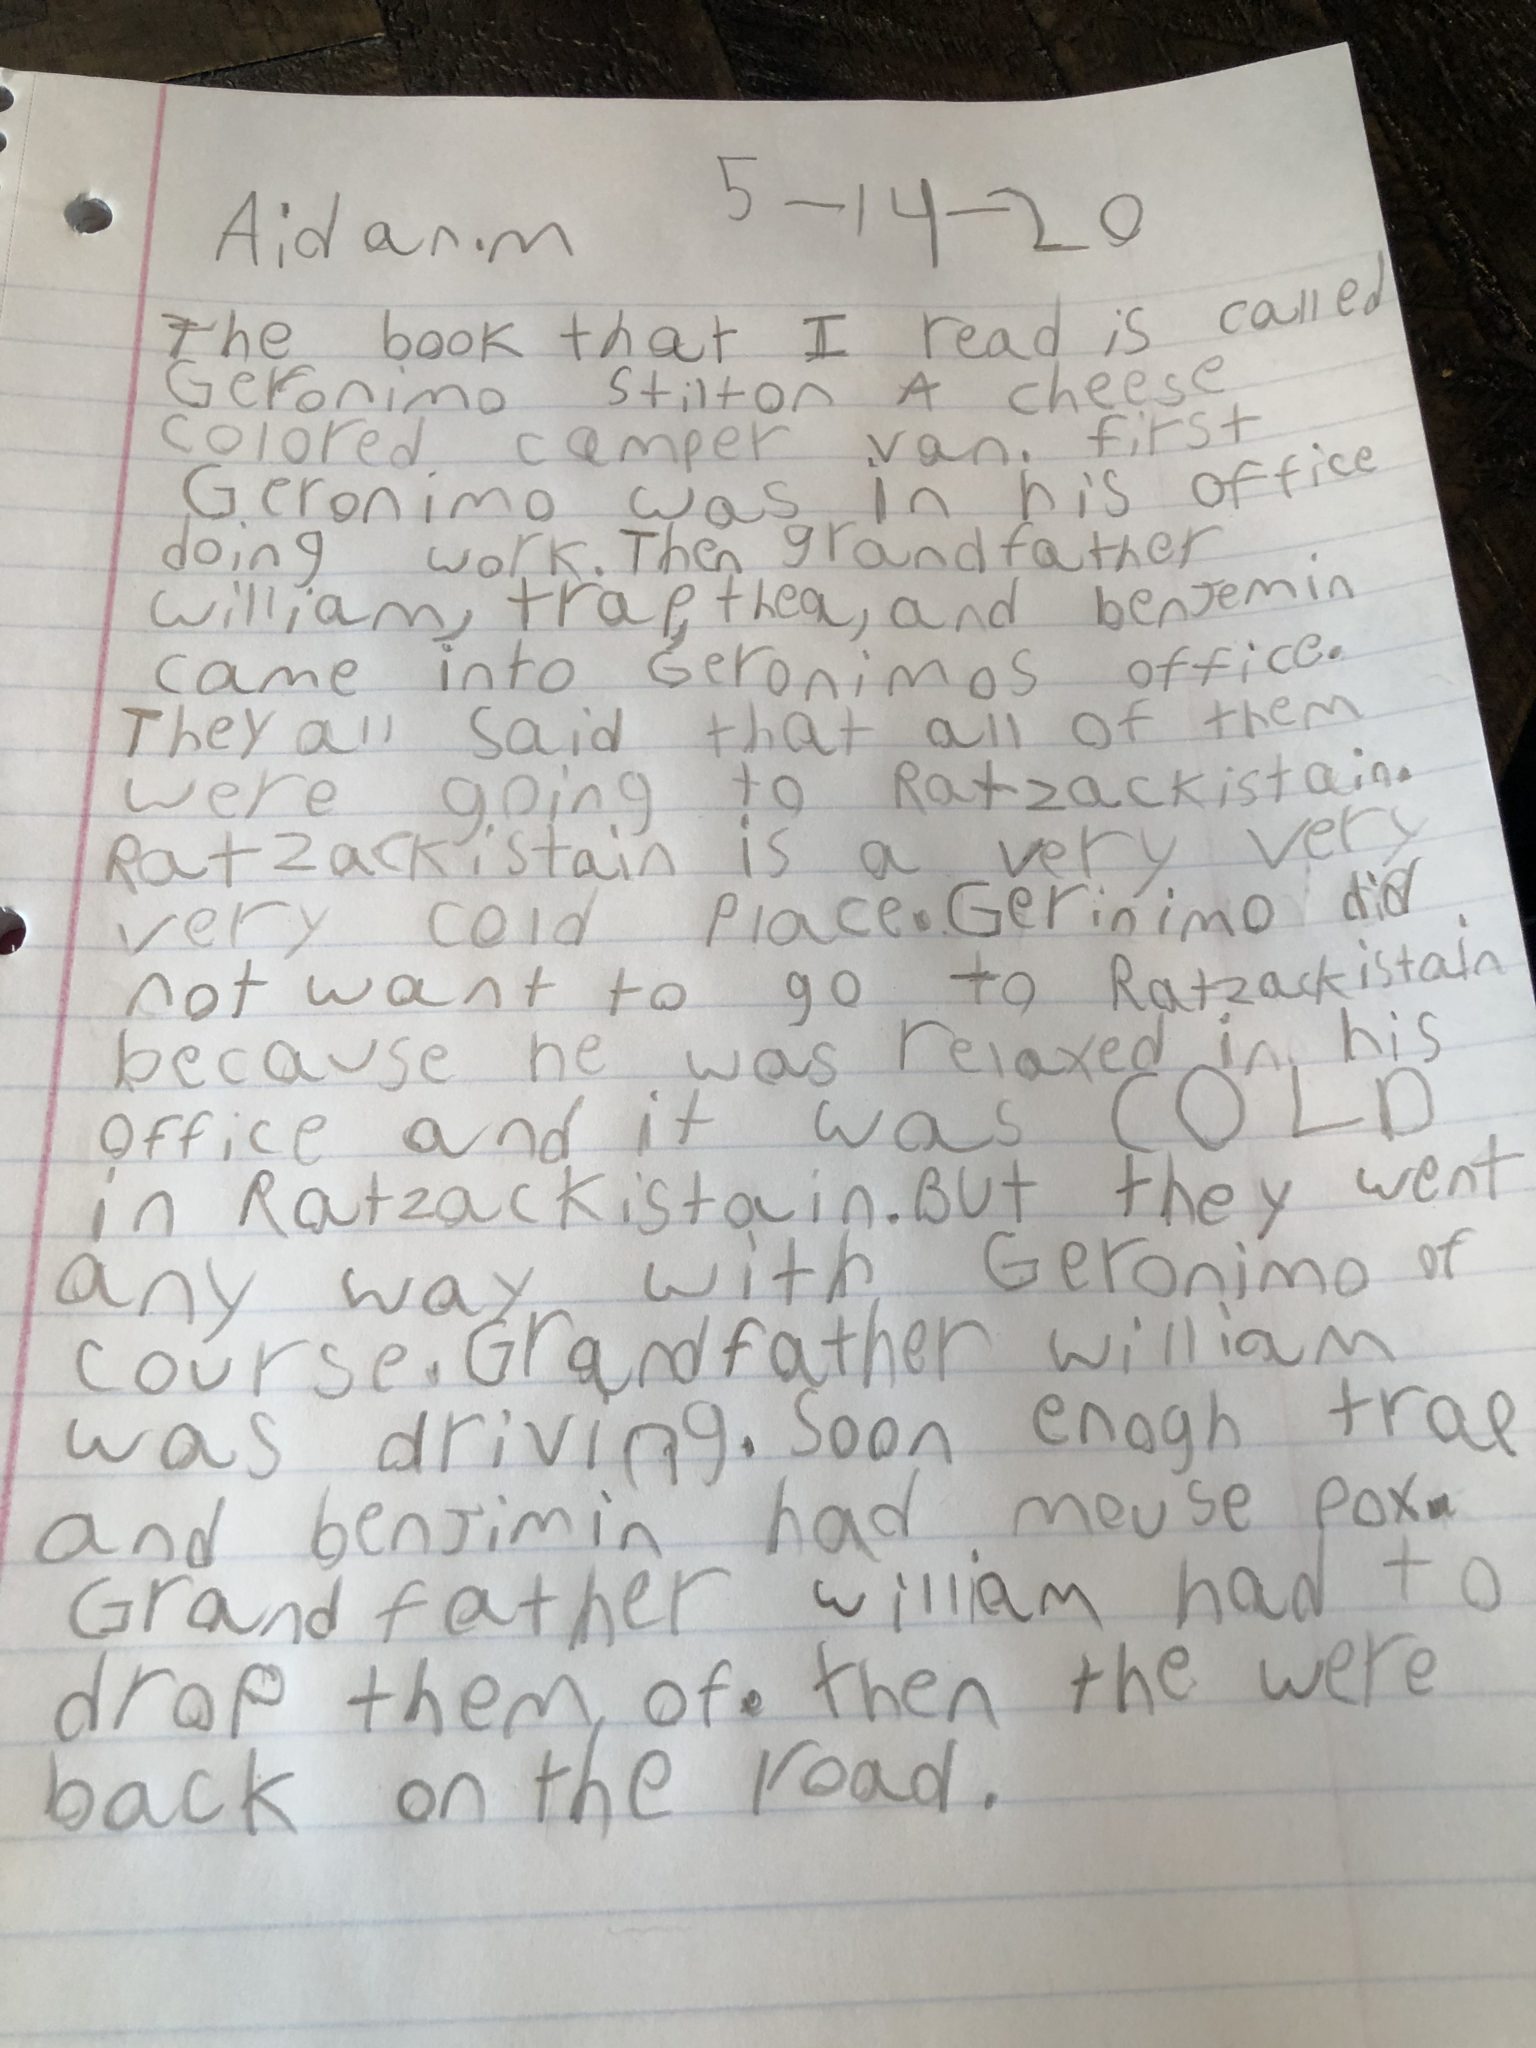 Aidan.m 5-14-20
The book that I read is called
Geronimo Stilton A cheese
colored camper van. first
Geronimo was in his office
doing work. Then grandfather
william, trap, thea, and benjemin
came into Geronimos office.
They all said that all of them
were going to Ratzackistain.
Ratzackistain is a very very
very cold place. Gerinimo did
not want to go to Ratzackistain
because he was relaxed in his
office and it was COLD
in Ratzackistain. But they went
any way with Geronimo of
course. Grandfather william
was driving. Soon enogh trap
and benjimin had mouse pox.
Grandfather william had to
drop them of. then the were
back on the road.